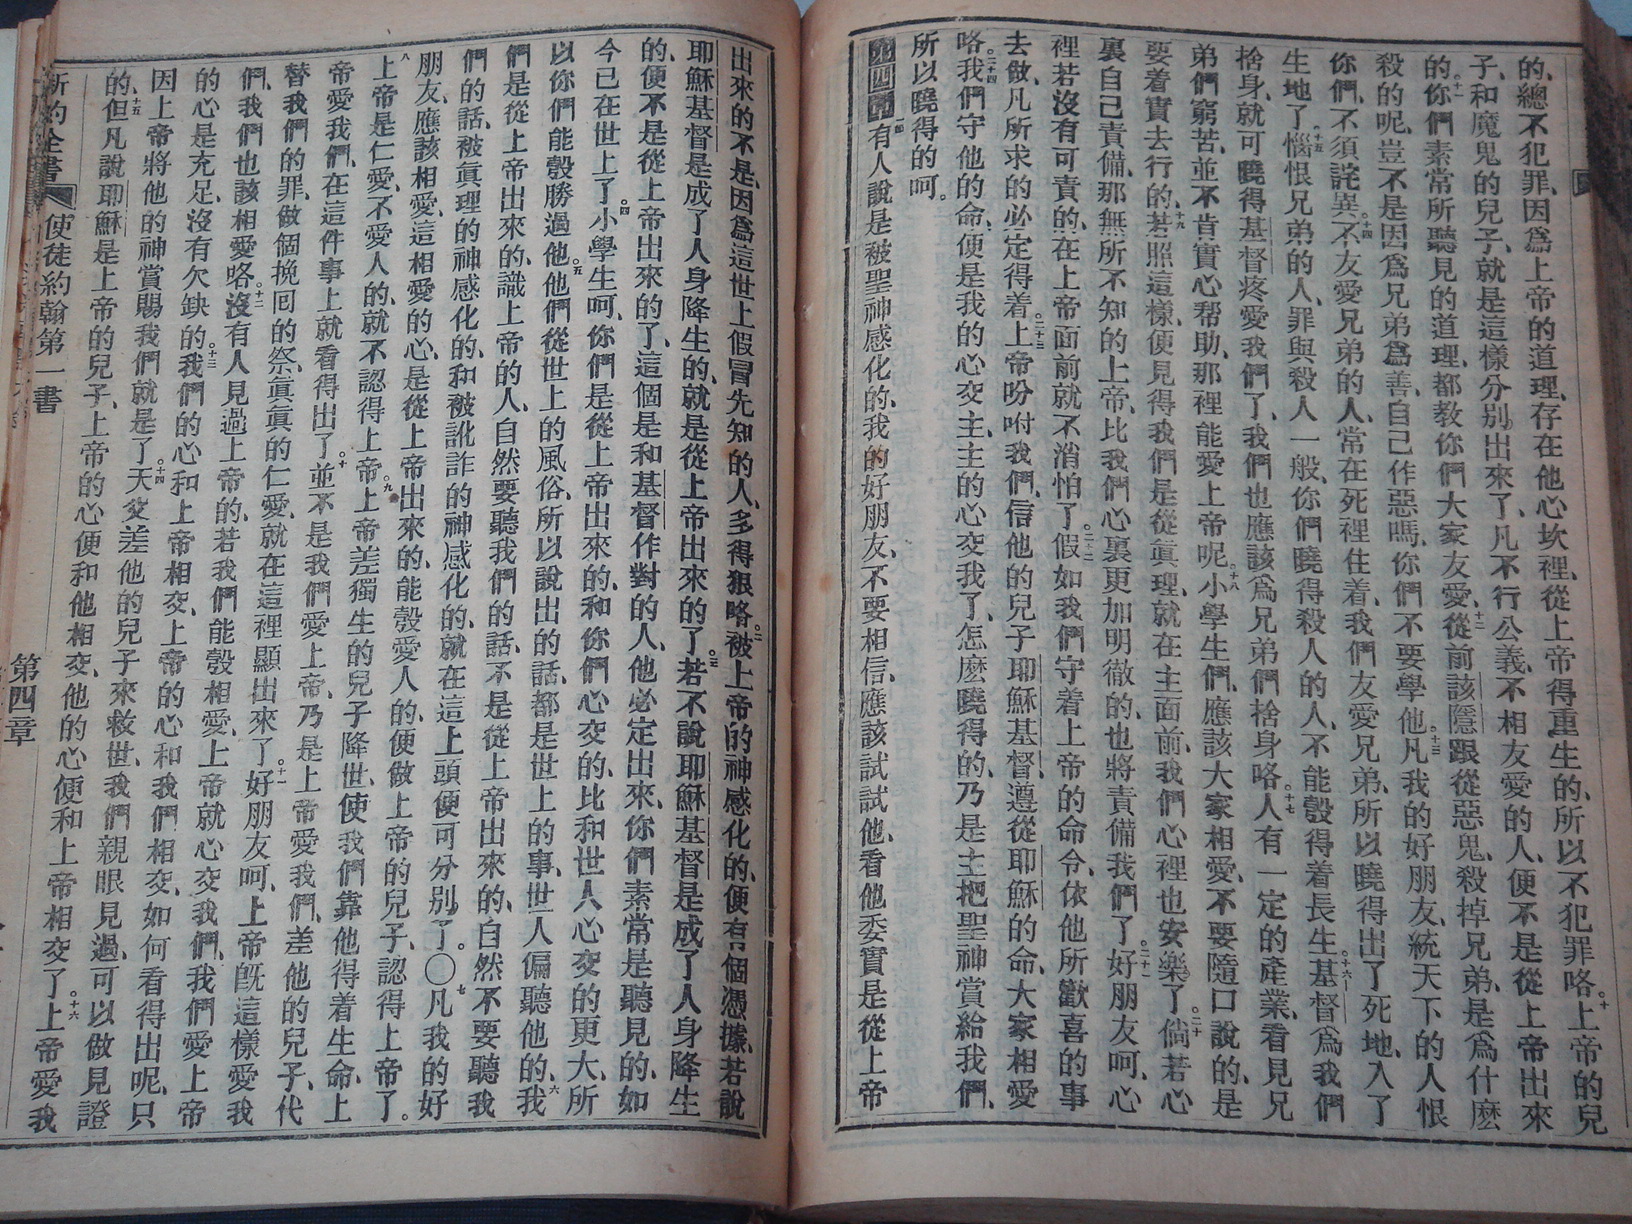 的、總不犯罪、因爲上帝的道理、存在他心坎裡、從上帝得重生的、所以不犯罪咯。十上帝的兒
子、和魔鬼的兒子、就是這樣分別出來了、凡不行公義、不相友愛的人、便不是從上帝出來
的。十一你們素常所聽見的道理、都教你們大家友愛、十二從前該隱跟從惡鬼、殺掉兄弟、是爲什麼
殺的呢、豈不是因爲兄弟爲善、自己作惡嗎、你們不要學他。十三凡我的好朋友、統天下的人恨
你們、不須詫異。十四不友愛兄弟的人、常在死裡住着、我們友愛兄弟、所以曉得出了死地、入了
生地了。十五惱恨兄弟的人、罪與殺人一般、你們曉得殺人的人、不能彀得着長生。十六基督爲我們
捨身、就可曉得基督疼愛我們了、我們也應該爲兄弟們捨身咯。十七人有一定的產業、看見兄
弟們窮苦、並不肯實心帮助、那裡能愛上帝呢。十八小學生們、應該大家相愛、不要隨口說的、是
要着實去行的、十九若照這樣、便見得我們是從眞理、就在主面前、我們心裡也安樂了。二十倘若心
裏自己責備、那無所不知的上帝、比我們心裏更加明徹的、也將責備我們了。二十一好朋友呵、心
裡若沒有可責的、在上帝面前就不消怕了。二十二假如我們守着上帝的命令、依他所歡喜的事
去做、凡所求的必定得着。二十三上帝吩咐我們、信他的兒子耶穌基督、遵從耶穌的命、大家相愛
咯。二十四我們守他的命、便是我的心交主、主的心交我了、怎麼曉得的、乃是主把聖神賞給我們、
所以曉得的呵。
第四章 一有人說是被聖神感化的、我的好朋友、不要相信、應該試試他、看他委實是從上帝
出來的不是、因爲這世上假冒先知的人、多得狠咯。二被上帝的神感化的、便有個憑據、若說
耶穌基督是成了人身降生的、就是從上帝出來的了。三若不說耶穌基督是成了人身降生
的、便不是從上帝出來的了、這個是和基督作對的人、他必定出來、你們素常是聽見的、如
今已在世上了。四小學生呵、你們是從上帝出來的、和你們心交的、比和世人心交的更大、所
以你們能彀勝過他。五他們從世上的風俗、所以說出的話、都是世上的事、世人偏聽他的、六我
們是從上帝出來的、識上帝的人、自然要聽我們的話、不是從上帝出來的、自然不要聽我
們的話、被眞理的神感化的、和被訛詐的神感化的、就在這上頭便可分別了。〇七凡我的好
朋友、應該相愛、這相愛的心、是從上帝出來的、能彀愛人的、便做上帝的兒子、認得上帝了。
八上帝是仁愛、不愛人的、就不認得上帝。九上帝差獨生的兒子降世、使我們靠他得着生命、上
帝愛我們、在這件事上就看得出了。十並不是我們愛上帝、乃是上帝愛我們、差他的兒子、代
替我們的罪、做個挽回的祭、眞眞的仁愛、就在這裡顯出來了。十一好朋友呵、上帝旣這樣愛我
們、我們也該相愛咯。十二沒有人見過上帝的、若我們能彀相愛、上帝就心交我們、我們愛上帝
的心是充足、沒有欠缺的。十三我們的心和上帝相交、上帝的心和我們相交、如何看得出呢、只
因上帝將他的神賞賜我們就是了。十四天父差他的兒子來救世、我們親眼見過、可以做見證
的、十五但凡說耶穌是上帝的兒子、上帝的心便和他相交、他的心便和上帝相交了。十六上帝愛我
新約全書 使徒約翰第一書 第四章